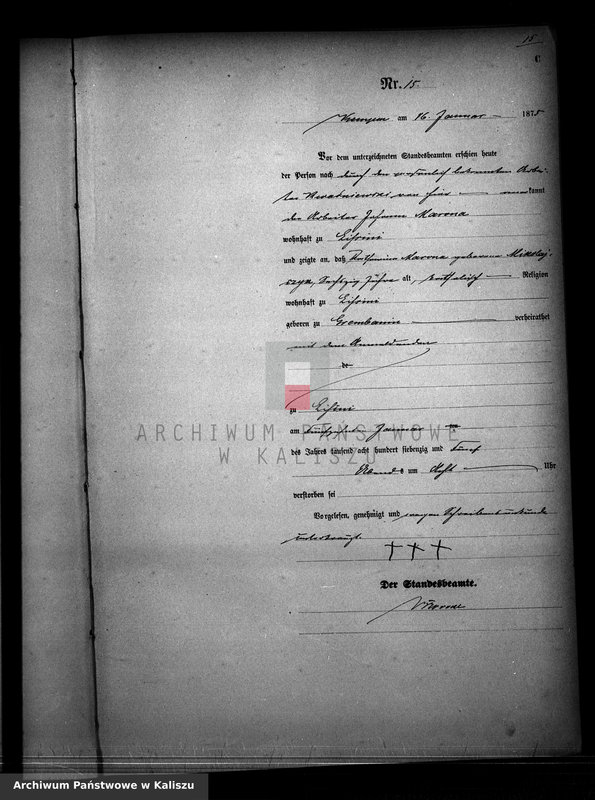 15
C
Nr. 15
Kempen am 16. Januar 1875
Vor dem unterzeichneten Standesbeamten erschien heute
der Person nach durch den persönlich bekannten Arbei-
ter von hier kannt
der Arbeiter Johann Marona
wohnhaft zu
und zeigte an, daß Katharina Marona geborene Mikolaj-
czyk, Sechzig Jahre alt, katholischer Religion
wohnhaft zu
geboren zu Grembanin verheirathet
mit dem Anmeldenden
de
zu
am fünfzehnten Januar
des Jahres tausend acht hundert siebenzig und fünf
Abends um Acht Uhr
verstorben sei
Vorgelesen, genehmigt und wegen Schreibensunkunde
unterkreuzt.
+ + +
Der Standesbeamte.
ARCHIWUM PAŃSTWOWE
W KALISZU
Archiwum Państwowe w Kaliszu